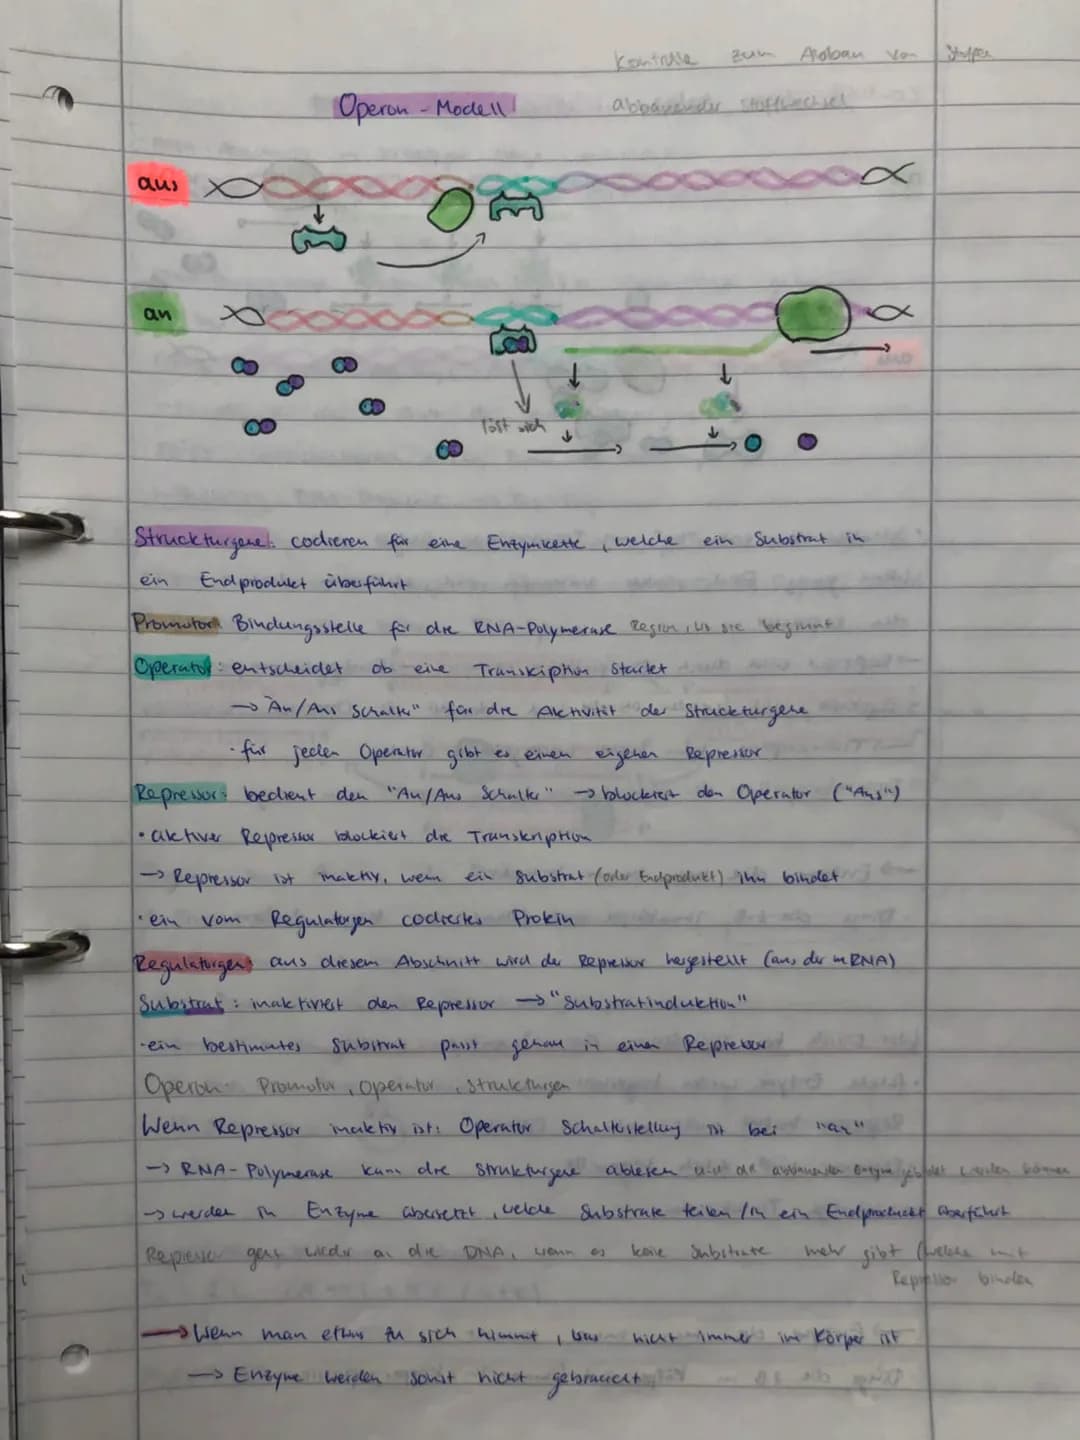 Kontrolle zum Abbau von Stoffen
Operon - Modell
abbauender Stoffwechsel
aus
an
löst sich
Struckturgene: codieren für eine Enzymkette, welche ein Substrat in
ein Endprodukt überführt
Promotor: Bindungsstelle für die RNA-Polymerase Region, wo sie beginnt
Operator: entscheidet ob eine Transkiption startet
→ "An/Aus Schalter" für die Aktivität der Struckturgene
· für jeden Operator gibt es einen eigenen Repressor
Repressor: bedient den "An/Aus Schalter" → blockiert den Operator ("Aus")
· aktiver Repressor blockiert die Transkription
→ Repressor ist inaktiv, wenn ein Substrat (oder Endprodukt) ihn bindet
· ein vom Regulatorgen codiertes Protein
Regulatorgen: aus diesem Abschnitt wird der Repressor hergestellt (aus der mRNA)
Substrat: inaktiviert den Repressor → "Substratinduktion"
· ein bestimmtes Substrat passt genau in einen Repressor
Operon: Promotor, Operator, Strukturgen
Wenn Repressor inaktiv ist: Operator Schalterstellung ist bei "an"
→ RNA-Polymerase kann die Strukturgene ablesen und die abbauenden Enzyme gebildet werden können
→ werden in Enzyme übersetzt, welche Substrate teilen / in ein Endprodukt überführt
Repressor geht wieder an die DNA, wenn es keine Substrate mehr gibt (welche mit
Repressor binden
→ Wenn man etwas zu sich nimmt, was nicht immer im Körper ist
→ Enzyme werden sonst nicht gebraucht